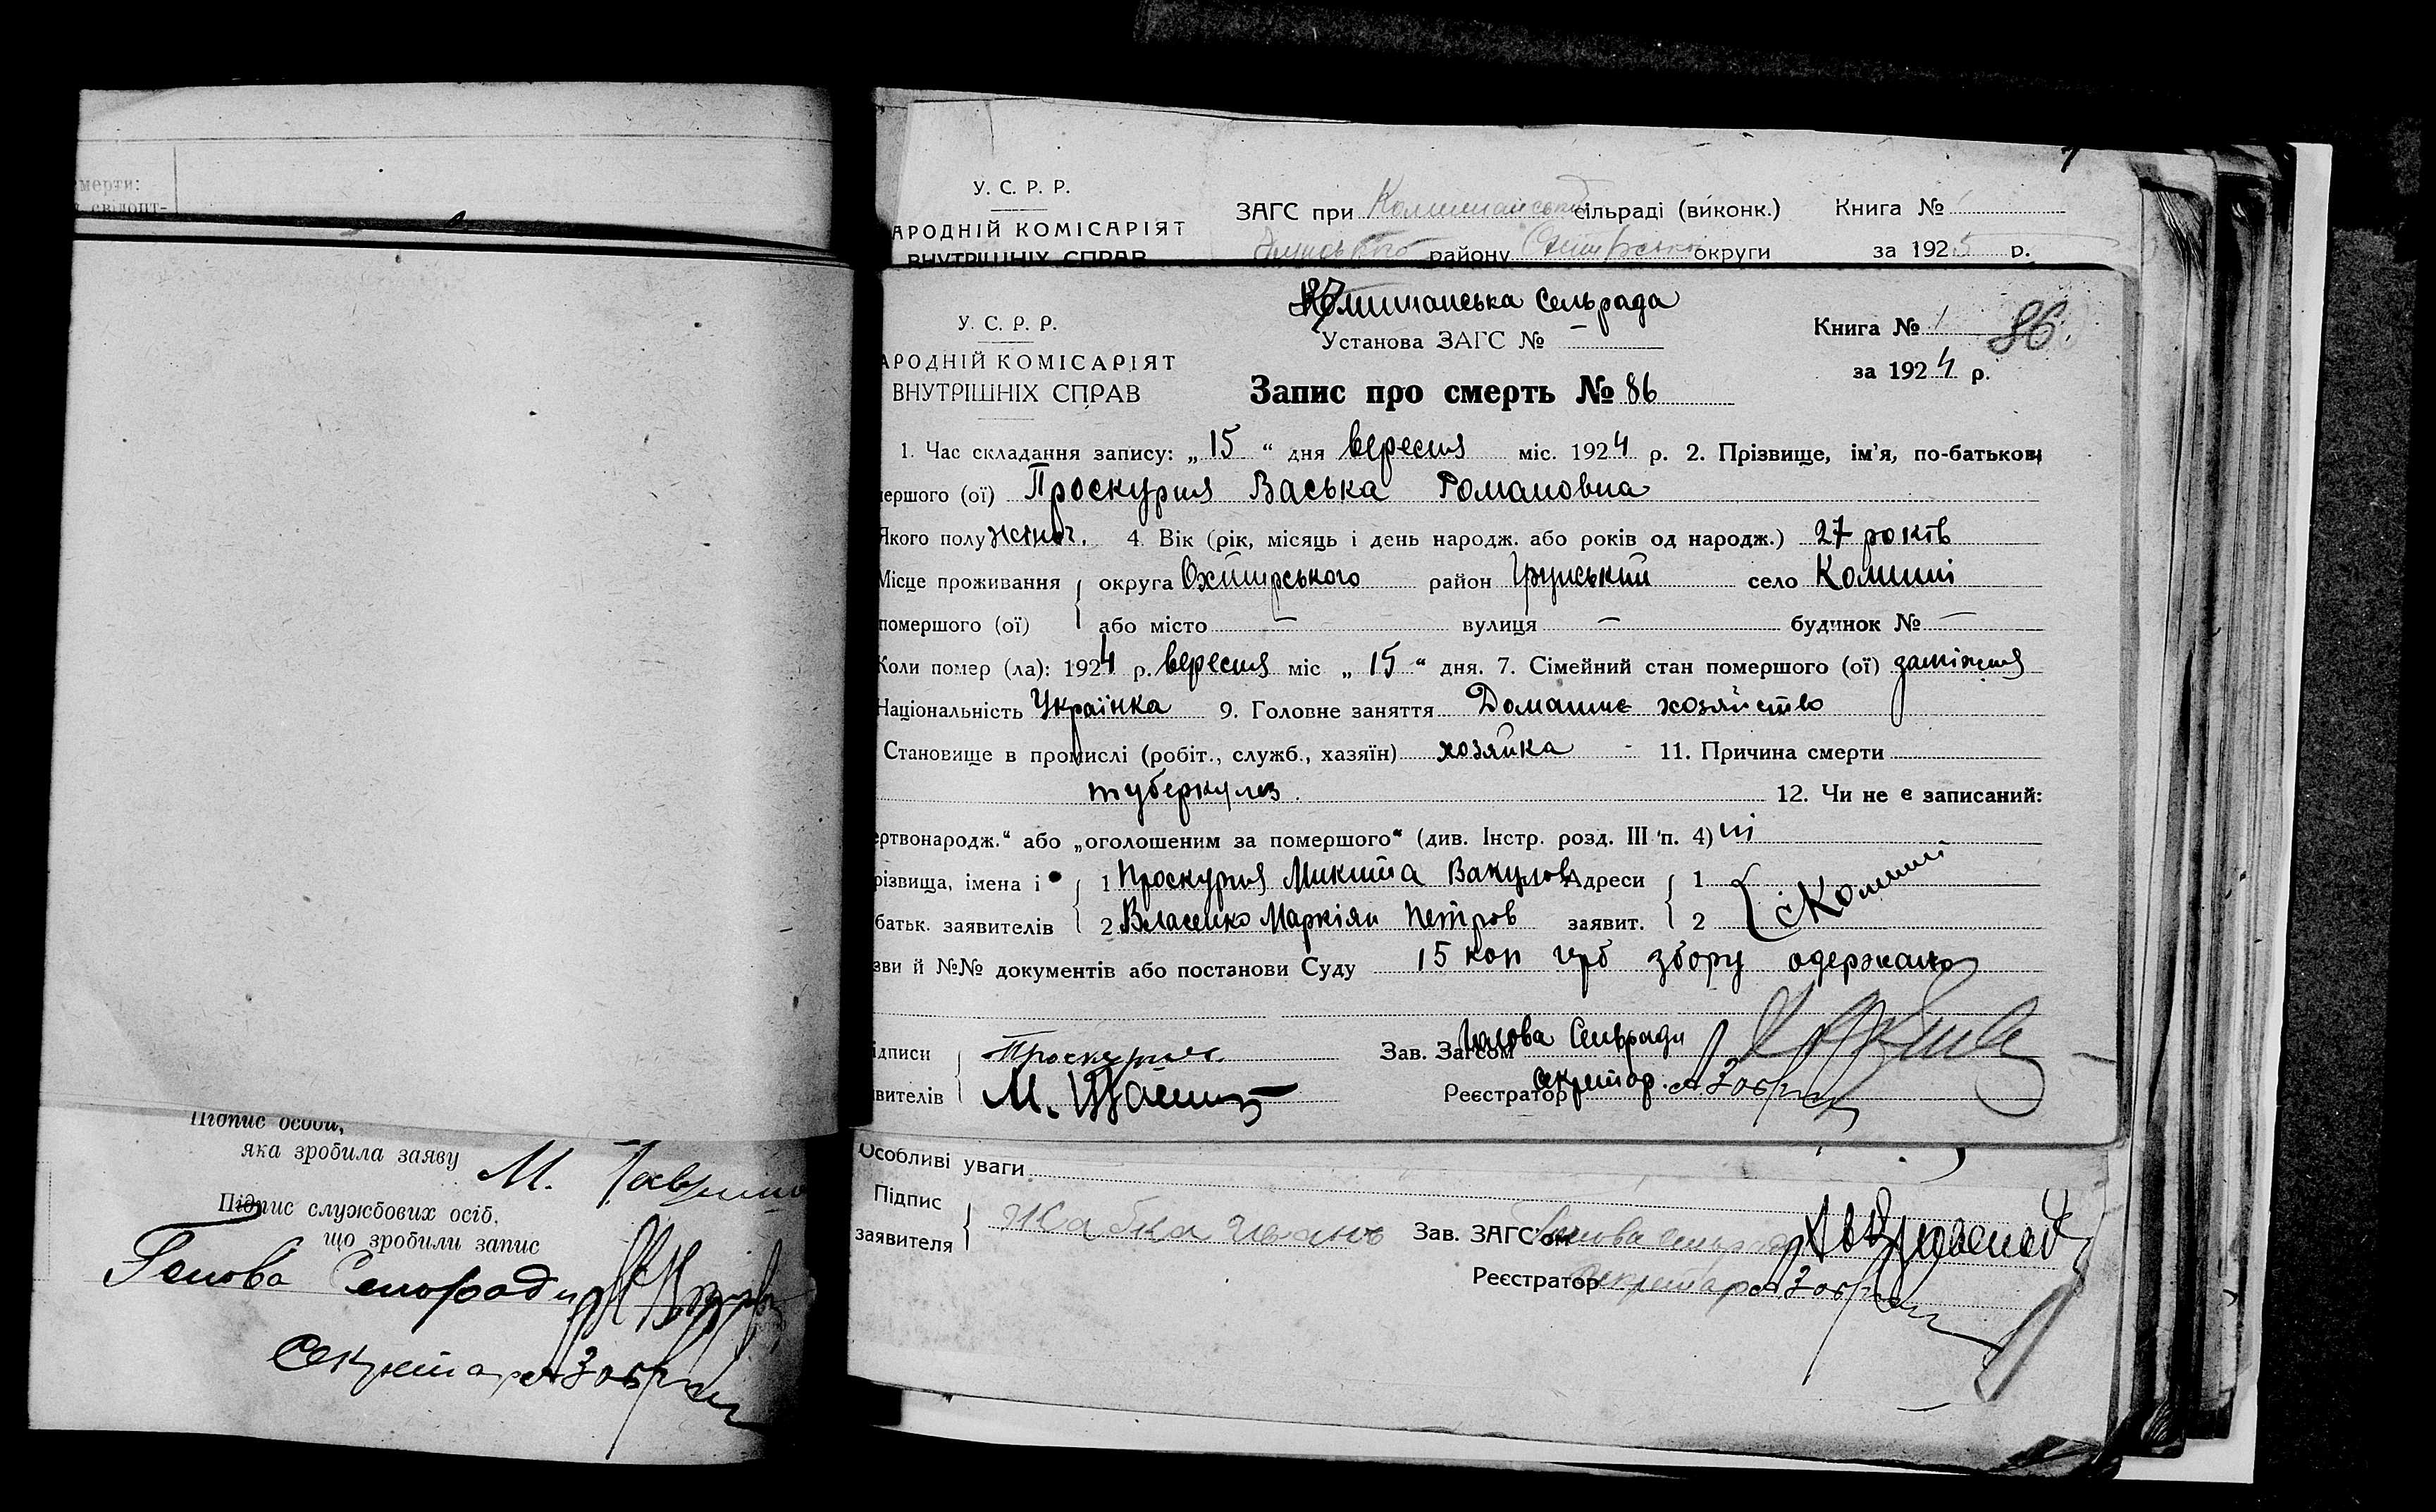 мерти:
свідопт-
Підпис особи,
яка зробила заяву М.
Підпис службових осіб,
що зробили запис
Голова
Секретар
У. С. Р. Р.
АРОДНІЙ КОМІСАРІЯТ
ВНУТРІШНІХ СПРАВ
ЗАГС при сільраді (виконк.)
району округи
Книга № 1
за 1925 р.
У. С. Р. Р.
АРОДНІЙ КОМІСАРІЯТ
ВНУТРІШНІХ СПРАВ
Комишанська Сельрада
Установа ЗАГС № —
Запис про смерть № 86
Книга № 1 86
за 1924 р.
1. Час складання запису: „ 15 “ дня вересня міс. 1924 р. 2. Прізвище, ім'я, по-батькові
мершого (ої) Проскурня Васька Романовна
Якого полу жіноч. 4. Вік (рік, місяць і день народж. або років од народж.) 27 років
Місце проживання округа Охтирського район Грунський село Комиші
помершого (ої) або місто — вулиця — будинок № —
Коли помер (ла): 1924 р. вересня міс „ 15 “ дня. 7. Сімейний стан помершого (ої) заміжня
Національність Українка 9. Головне заняття Домашнє хозяйство
Становище в промислі (робіт., служб., хазяїн) хозяйка - 11. Причина смерти
туберкулез. 12. Чи не є записаний:
ертвонародж.“ або „оголошеним за помершого“ (див. Інстр. розд. III п. 4) ні
різвища, імена і 1 Проскурня Микита Вакулов Адреси 1 с Комиші
батьк. заявителів 2 Власенко Маркіян Петров заявит. 2
зви й №№ документів або постанови Суду 15 коп герб збору одержано
ідписи Проскурня Зав. Загсом Голова Сельради
явителів М. Реєстратор секретар
Особливі уваги
Підпис
заявителя Жабка Иванъ
Зав. ЗАГС'ом Голова
Реєстратор Секретар